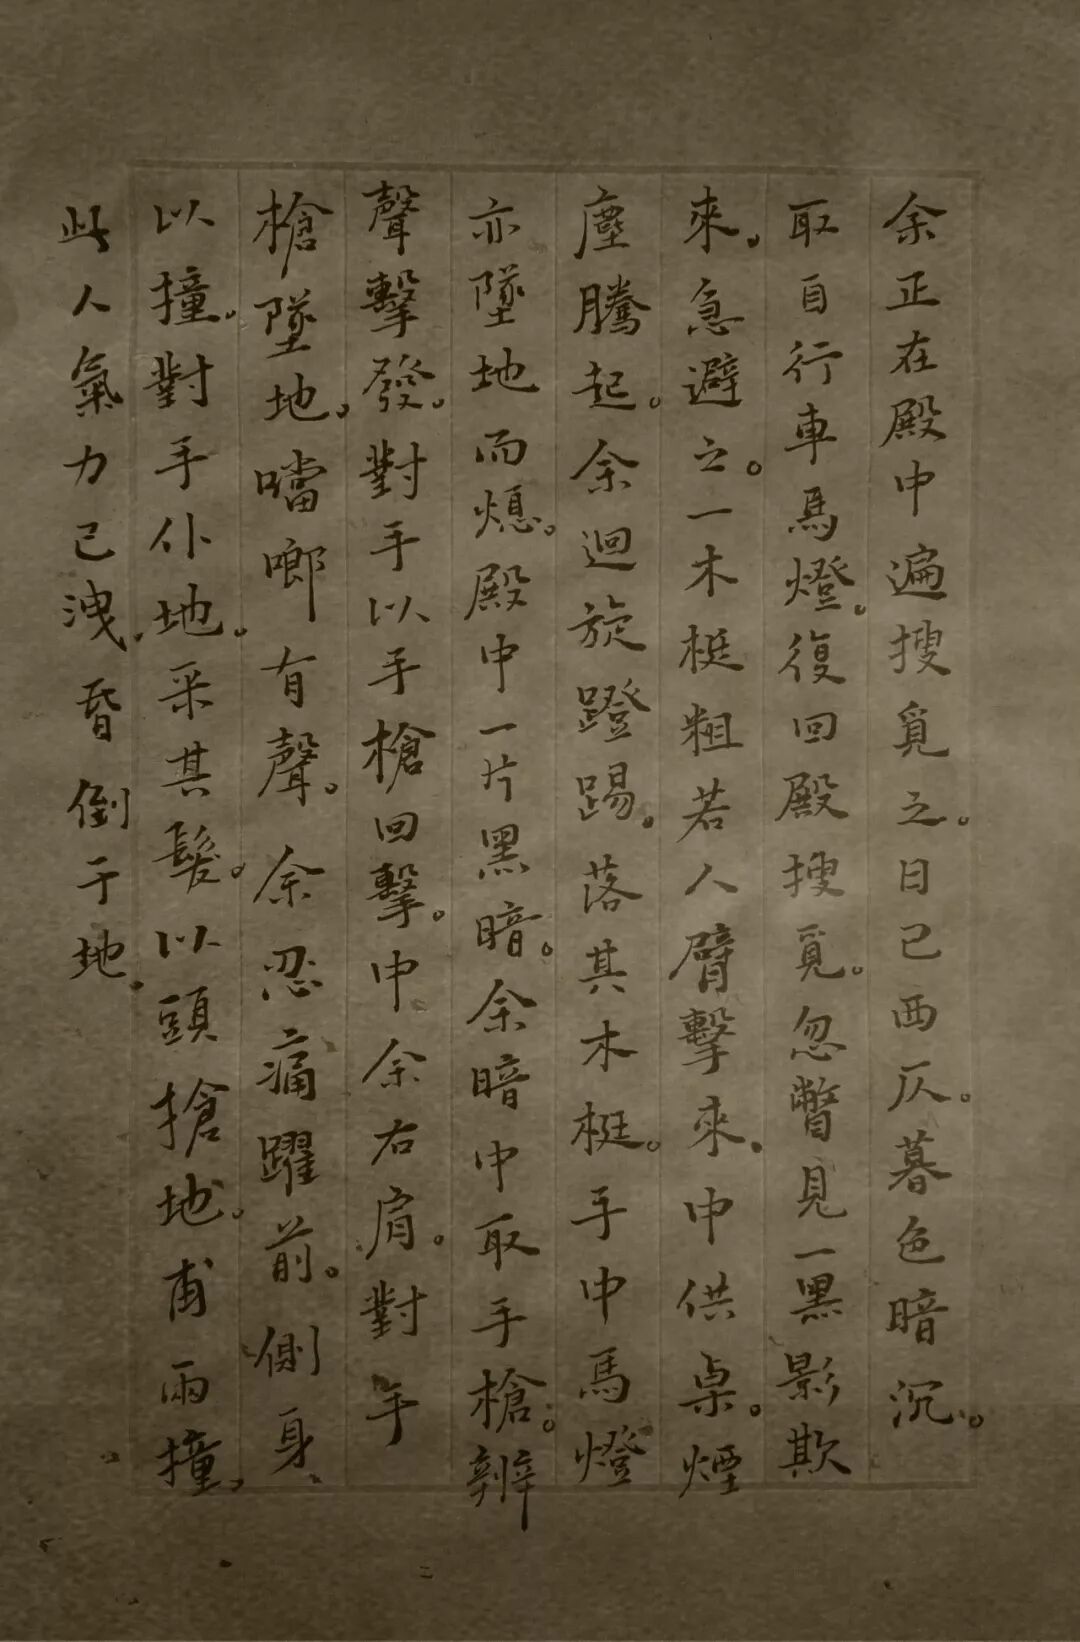 余正在殿中遍搜覓之。日已西仄。暮色暗沉。
取自行車馬燈。復回殿搜覓。忽瞥見一黑影欺
來。急避之。一木梃粗若人臂擊來。中供桌。煙
塵騰起。余迴旋蹬踢。落其木梃。手中馬燈
亦墜地而熄。殿中一片黑暗。余暗中取手槍。辨
聲擊發。對手以手槍回擊。中余右肩。對手
槍墜地。噹啷有聲。余忍痛躍前。側身
以撞。對手仆地。采其髮。以頭搶地。甫兩撞。
此人氣力已洩。昏倒于地。